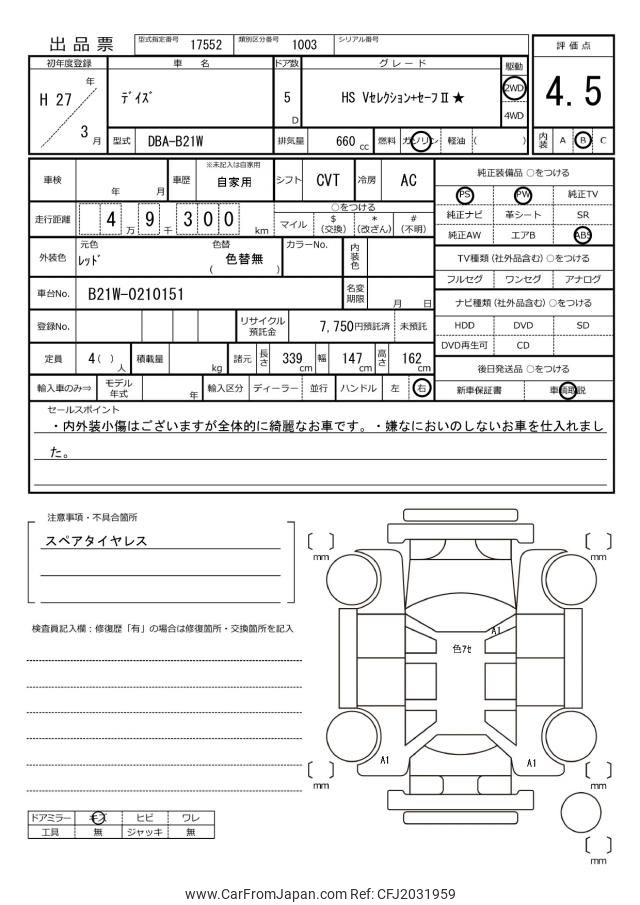 出品票
型式指定番号 17552 類別区分番号 1003 シリアル番号
評価点
4.5
内装 A B C
初年度登録 車名 ドア数 グレード 駆動
H 27 年 3 月
デイズ
5 D
HS Vセレクション+セーフⅡ★
2WD
4WD
型式 DBA-B21W 排気量 660 cc 燃料 ガソリン 軽油 ( )
車検 年 月 車歴 ※未記入は自家用 自家用 シフト CVT 冷房 AC
走行距離 4 万 9 千 3 0 0 km
○をつける
マイル $(交換) *(改ざん) #(不明)
外装色 元色 レッド 色替 ( 色替無 ) カラーNo. 内装色
車台No. B21W-0210151 名変期限 月 日
登録No. リサイクル預託金 7,750円預託済 未預託
定員 4( ) 人 積載量 kg 諸元 長さ 339 cm 幅 147 cm 高さ 162 cm
輸入車のみ⇒ モデル年式 年 輸入区分 ディーラー 並行 ハンドル 左 右
純正装備品 ○をつける
PS PW 純正TV
純正ナビ 革シート SR
純正AW エアB ABS
TV種類(社外品含む)○をつける
フルセグ ワンセグ アナログ
ナビ種類(社外品含む)○をつける
HDD DVD SD
DVD再生可 CD
後日発送品 ○をつける
新車保証書 車輌取説
セールスポイント
・内外装小傷はございますが全体的に綺麗なお車です。・嫌なにおいのしないお車を仕入れまし
た。
注意事項・不具合箇所
スペアタイヤレス
検査員記入欄：修復歴「有」の場合は修復箇所・交換箇所を記入
ドアミラー キズ ヒビ ワレ
工具 無 ジャッキ 無
mm
mm
A1
色アセ
A1
A1
mm
mm
mm
www.CarFromJapan.com Ref: CFJ2031959